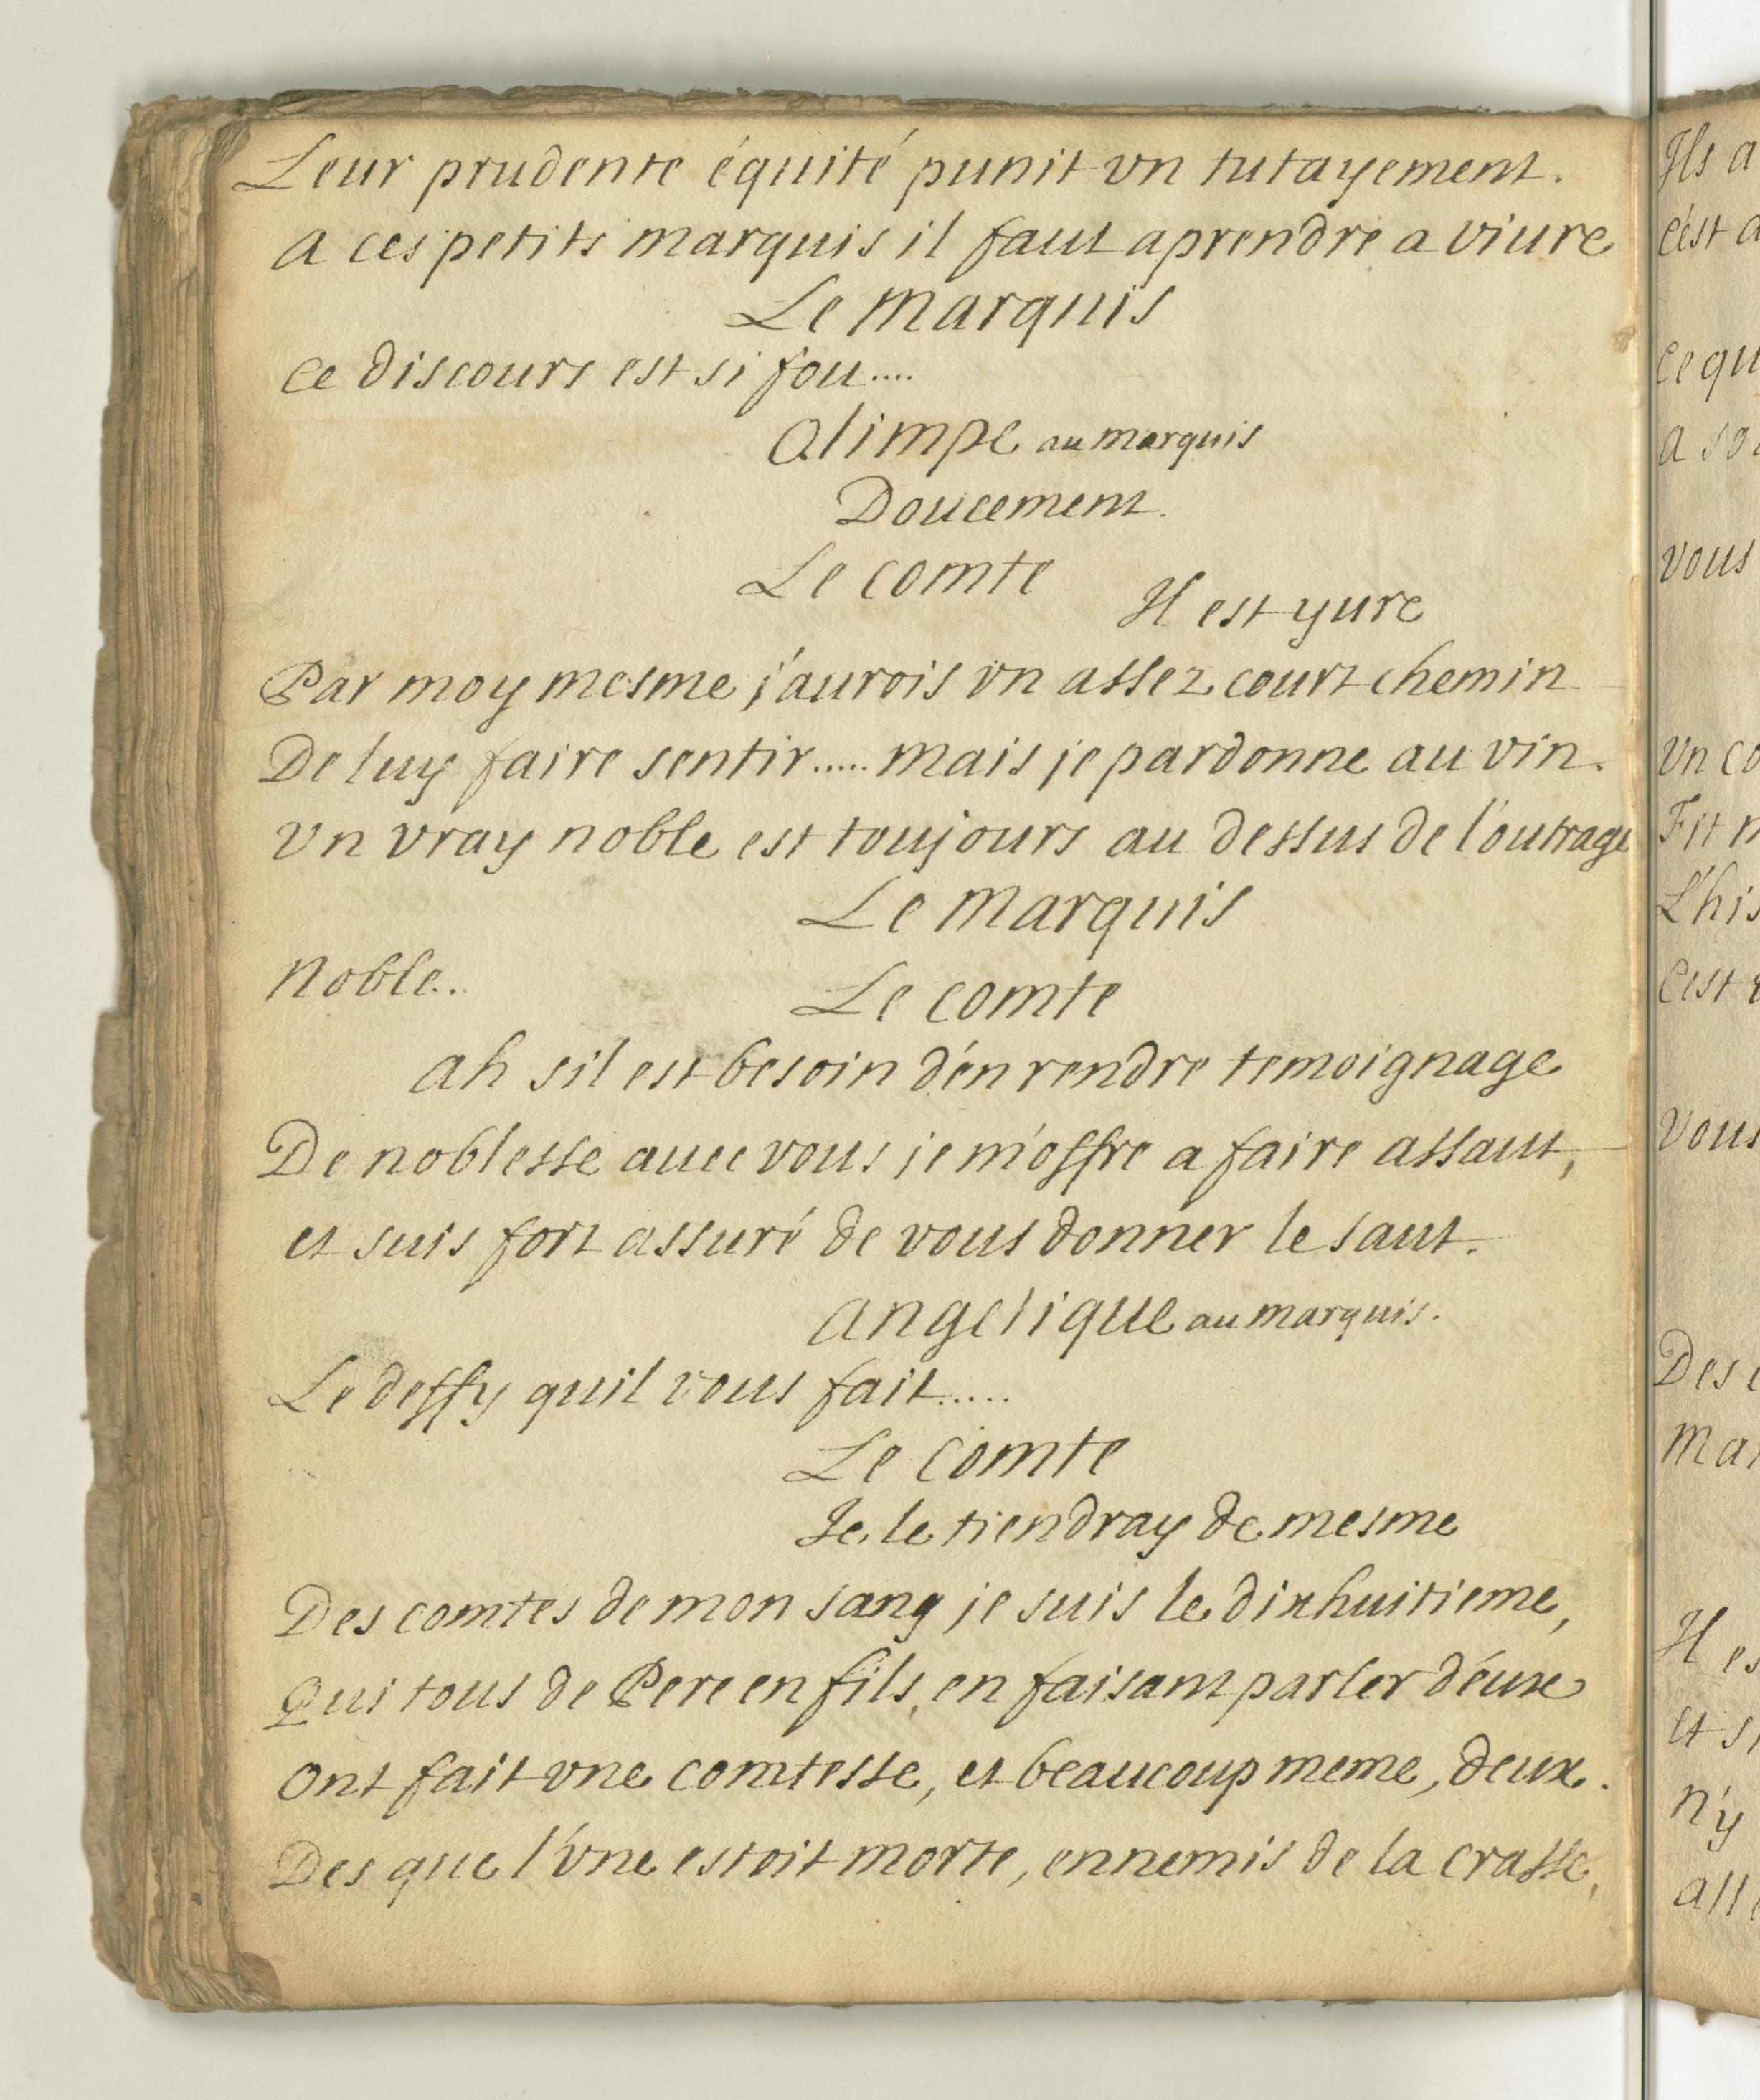 Leur prudente équité punit vn tutayement.
a ces petits marquis il faut aprendre a viure
Le marquis
Ce discours est si fou....
Olimpe au marquis
Doucement.
Le comte
Il est yure
Par moy mesme j'aurois vn assez court chemin
De luy faire sentir..... mais je pardonne au vin.
vn vray noble est toujours au dessus de l'outrage
Le marquis
noble..
Le comte
ah sil est besoin d'en rendre temoignage
De noblesse auec vous je m'offre a faire assaut,
et suis fort assuré de vous donner le saut.
angelique au marquis.
Le deffy quil vous fait.....
Le comte
Je le tiendray de mesme
Des comtes de mon sang je suis le dixhuitieme,
Qui tous de Pere en fils, en faisant parler d'eux
Ont fait vne comtesse, et beaucoup meme, deux.
Des que l'vne estoit morte, ennemis de la crasse,
Ils a
c'est a
Ce qu
a so
vous
vn co
Fit n
L'his
C'est
vous
Des
mai
Il es
et si
n'y
all